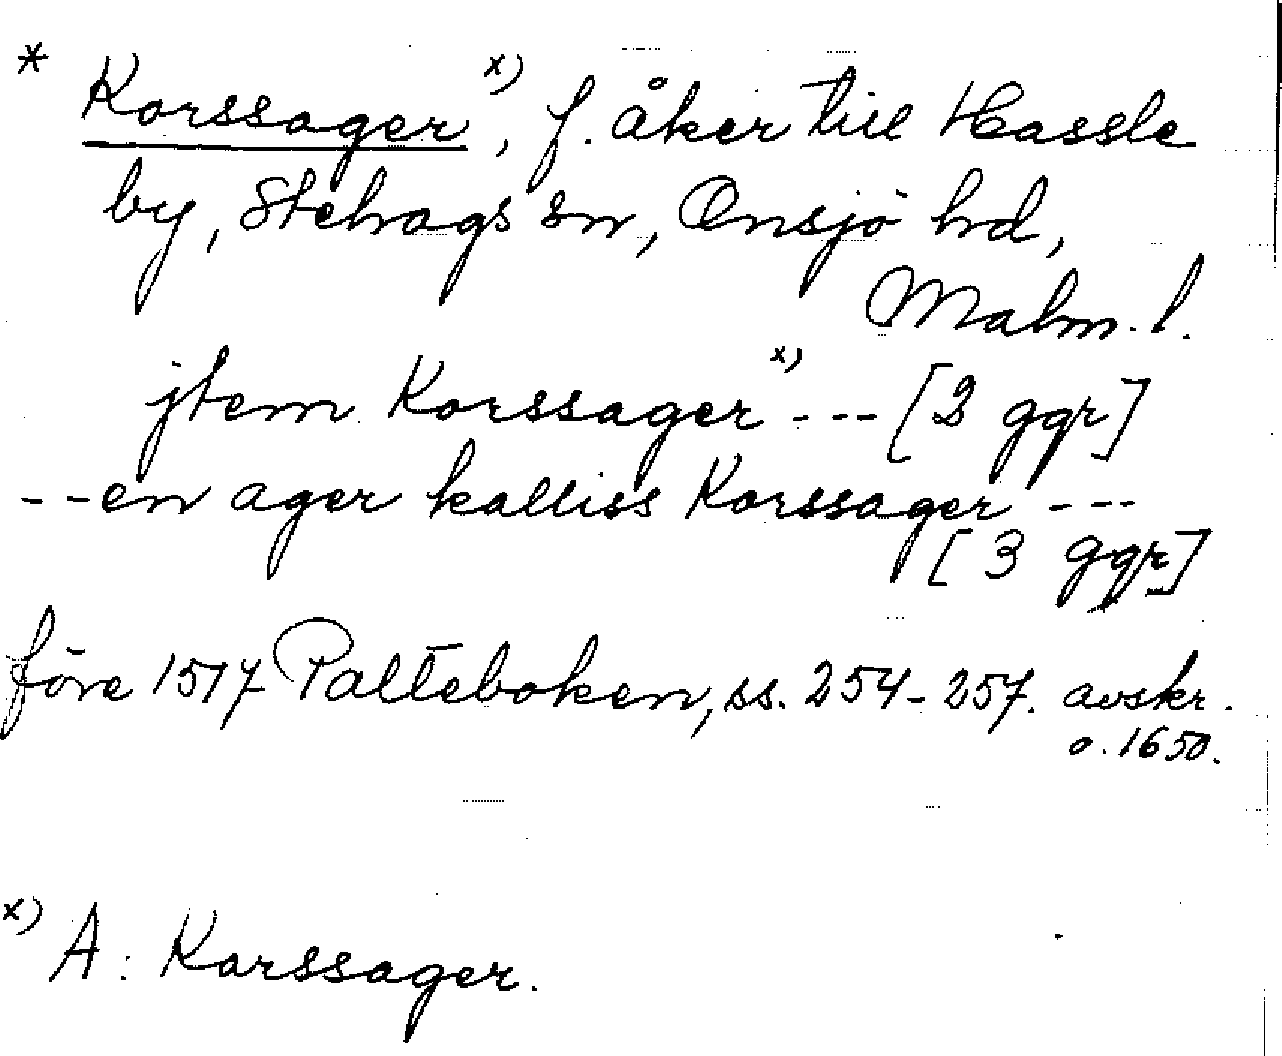 * Korssager x), f. åker till Hassle
by, Stehags sn, Onsjö hd,
Malm. l.
jtem Korssager x) --- [2 ggr]
-- en ager kalliss Korssager ---
[3 ggr]
före 1517 Palteboken, ss. 254-257. avskr.
o. 1650.
x) A: Karssager.